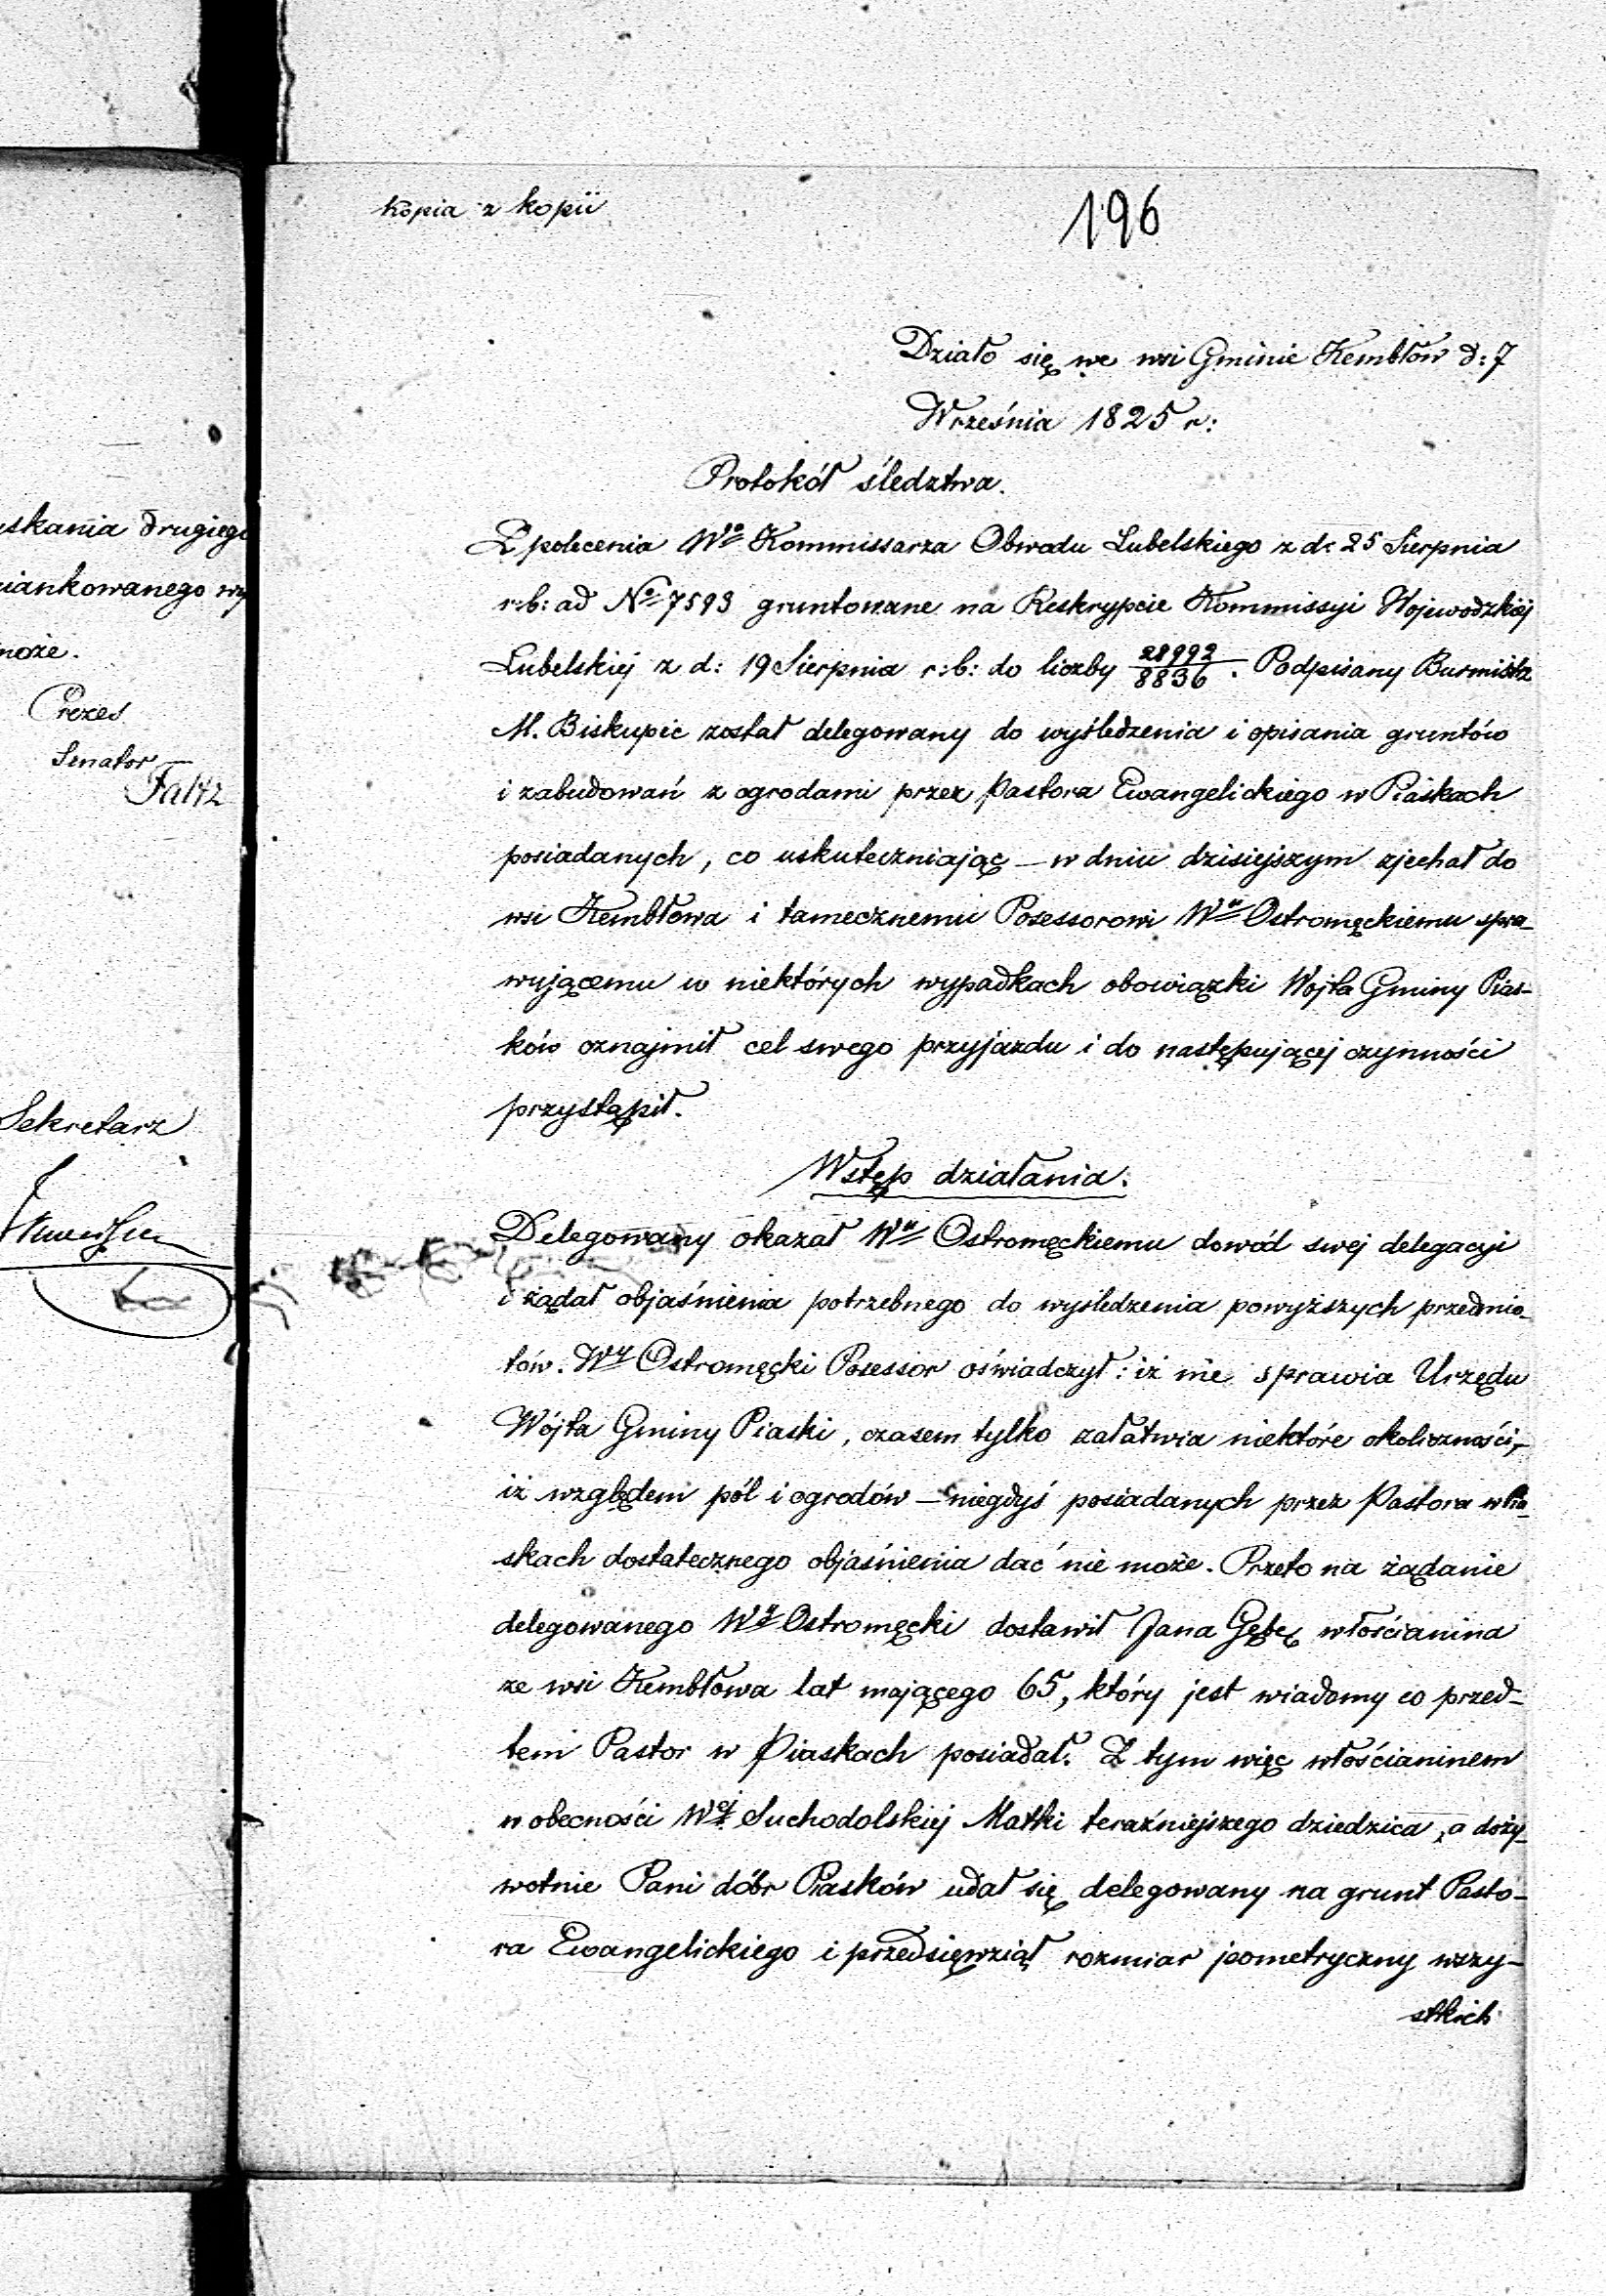 uskania drugiego
iankowanego wy
może.
Prezes
Senator
Faltz
Sekretarz
kopia z kopii
196
Działo się we wsi Gminie Kembłów d: 7
Września 1825 r:
Protokół śledztwa.
Z polecenia Wgo Kommissarza Obwodu Lubelskiego z d: 25 Sierpnia
r:b: ad No 7593 gruntowane na Reskrypcie Kommissyi Wojewodzkiéj
Lubelskiéj z d: 19 Sierpnia r:b: do liczby 28992/8836. Podpisany Burmistz
M. Biskupic został delegowany do wyśledzenia i opisania gruntów
i zabudowań z ogrodami przez Pastora Ewangelickiego w Piaskach
posiadanych, co uskuteczniając – w dniu dzisiejszym zjechał do
wsi Kembłowa i tamecznemu Posessorowi Wu Ostromęckiemu spra-
wującemu w niektórych wypadkach obowiązki Wojta Gminy Pias-
ków oznajmił cel swego przyjazdu i do następującej czynności
przystąpił.
Wstęp działania.
Delegowany okazał Wu Ostromęckiemu dowód swej delegacyi
i żądał objaśnienia potrzebnego do wyśledzenia powyższych przedmio-
tów. Wy Ostromęcki Posessor oświadczył: iż nie sprawia Urzędu
Wójta Gminy Piaski, czasem tylko załatwia niektóre okoliczności,
iż względem pól i ogrodów – niegdyś posiadanych przez Pastora w Pia-
skach dostatecznego objaśnienia dać nie może. Przeto na żądanie
delegowanego Wy Ostromęcki dostawił Jana Gębę włościanina
ze wsi Kembłowa lat mającego 65, który jest wiadomy co przed-
tem Pastor w Piaskach posiadał. Z tym więc włościaninem
w obecności Wej Suchodolskiej Matki teraźniejszego dziedzica, a doży-
wotnie Pani dóbr Piasków udał się delegowany na grunt Pasto-
ra Ewangelickiego i przedsięwziął rozmiar jeometryczny wszy-
stkich